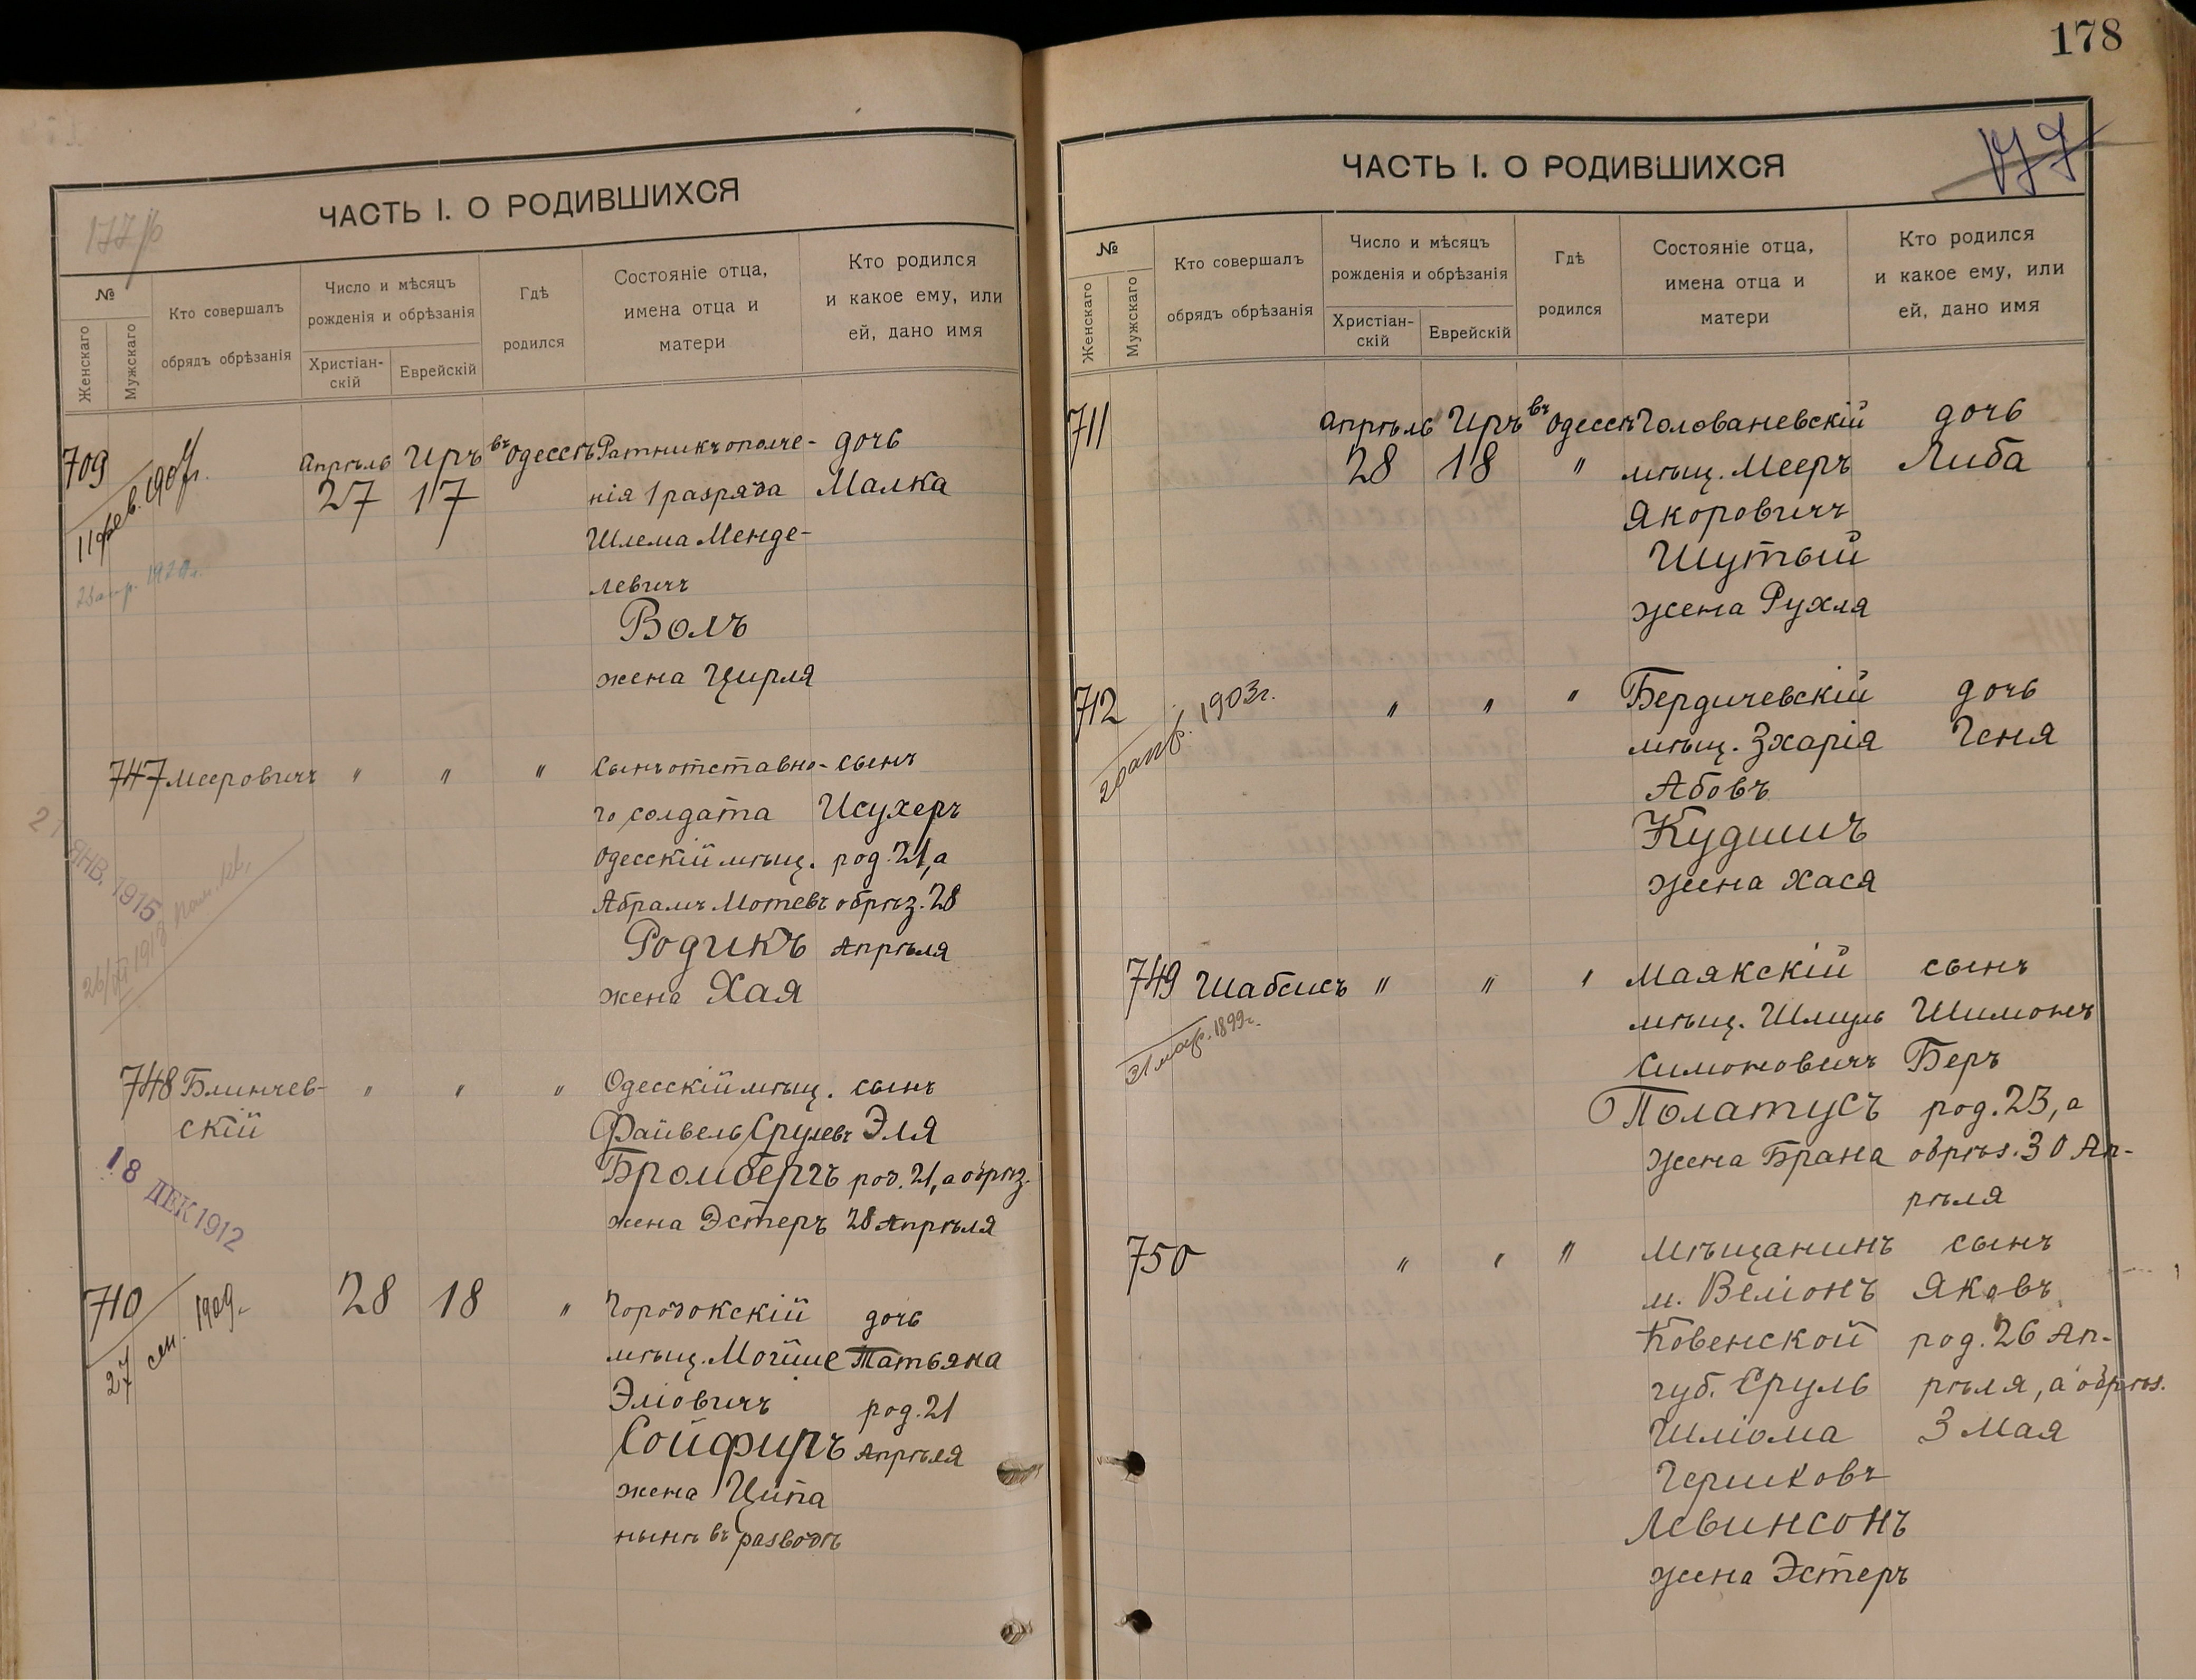 178
ЧАСТЬ I. О РОДИВШИХСЯ
177/б
№
Женскаго
Мужскаго
Кто совершалъ
обрядъ обрѣзанія
Число и мѣсяцъ
рожденія и обрѣзанія
Христіан-
скій
Еврейскій
Гдѣ
родился
Состояніе отца,
имена отца и
матери
Кто родился
и какое ему, или
ей, дано имя
709 Апрѣль Иръ въ Одессѣ Ратникъ ополче- дочь
11 фев. 1907г.
27 17 нія 1 разряда Малка
Шлема Менде-
левичъ
Волъ
жена Цирля
747 Мееровичъ " " " Сынъ отставно- сынъ
го солдата Исухеръ
Одесскій мѣщ. род. 21, а
Абрамъ Мотевъ обрѣз. 28
Родикъ Апрѣля
жена Хая
21 ЯНВ. 1915
748 Блинчев- " " " Одесскій мѣщ. сынъ
скій Файвель Срулевъ Эля
Бромбергъ род. 21, а обрѣз.
жена Эстеръ 28 Апрѣля
18 ДЕК 1912
710 28 18 " Городокскій дочь
27 сен. 1909г.
мѣщ. Мошше Татьяна
Эліовичъ род. 21
Сойферъ Апрѣля
жена Ципа
нынѣ въ разводѣ
ЧАСТЬ I. О РОДИВШИХСЯ
177
№
Женскаго
Мужскаго
Кто совершалъ
обрядъ обрѣзанія
Число и мѣсяцъ
рожденія и обрѣзанія
Христіан-
скій
Еврейскій
Гдѣ
родился
Состояніе отца,
имена отца и
матери
Кто родился
и какое ему, или
ей, дано имя
711 Апрѣль Иръ въ Одессѣ Голованевскій дочь
28 18 " мѣщ. Мееръ Либа
Якоровичъ
Шутый
жена Рухля
712 " " " Бердичевскій дочь
1903г.
мѣщ. Зхарія Геня
Абовъ
Кудишъ
жена Хася
749 Шабсисъ " " " Маякскій сынъ
31 мар. 1899г.
мѣщ. Шмуль Шимонъ
Симоновичъ Беръ
Полатусъ род. 23, а
жена Брана обрѣз. 30 Ап-
рѣля
750 " " " Мѣщанинъ сынъ
м. Веліонъ Яковъ
Ковенской род. 26 Ап-
губ. Сруль рѣля, а обрѣз.
Шліома 3 Мая
Гершковъ
Левинсонъ
жена Эстеръ